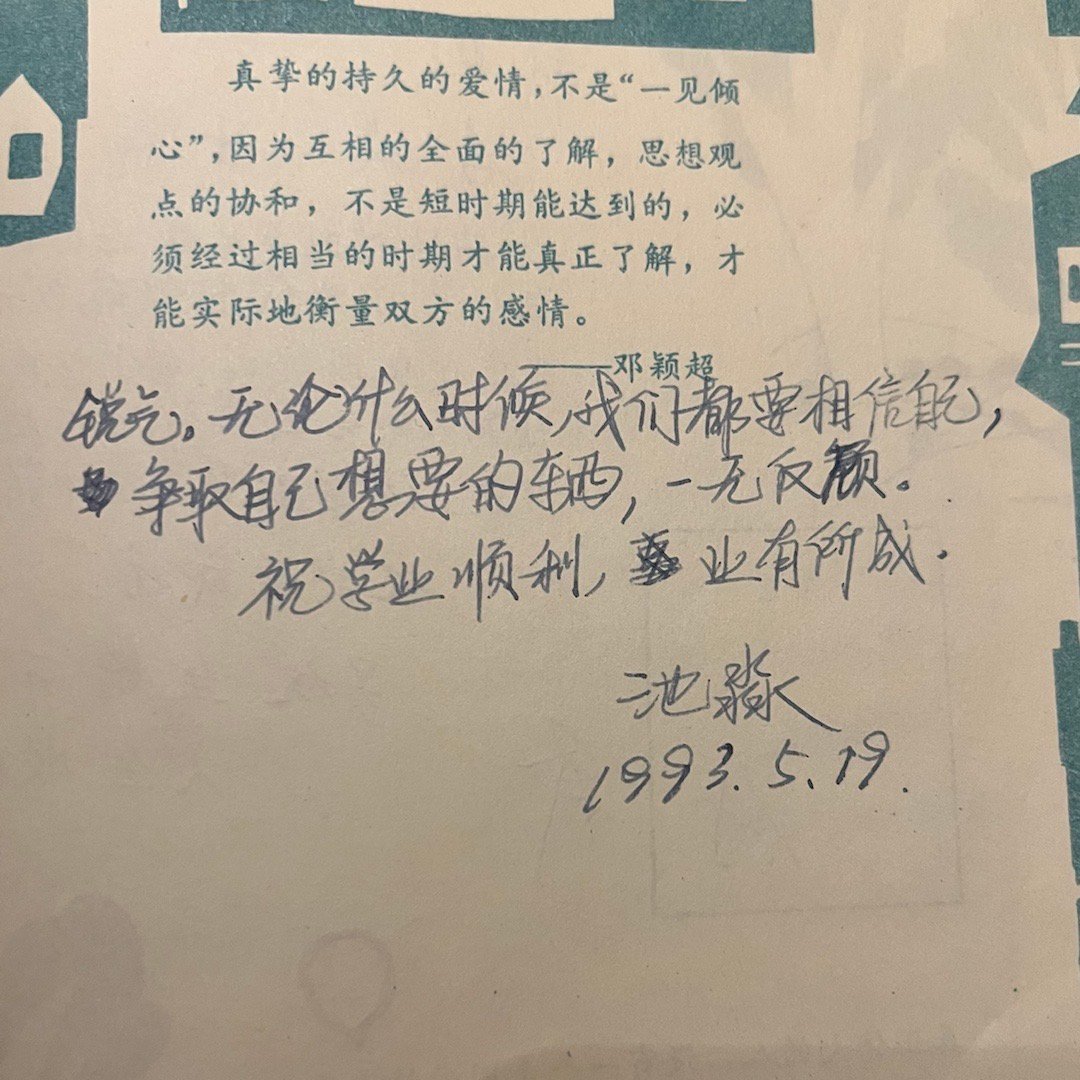 真挚的持久的爱情，不是“一见倾
心”，因为互相的全面的了解，思想观
点的协和，不是短时期能达到的，必
须经过相当的时期才能真正了解，才
能实际地衡量双方的感情。
——邓颖超
锐气。无论什么时候，我们都要相信自己，
争取自己想要的东西，一无反顾。
祝学业顺利，业有所成．
池淼
1993.5.19.